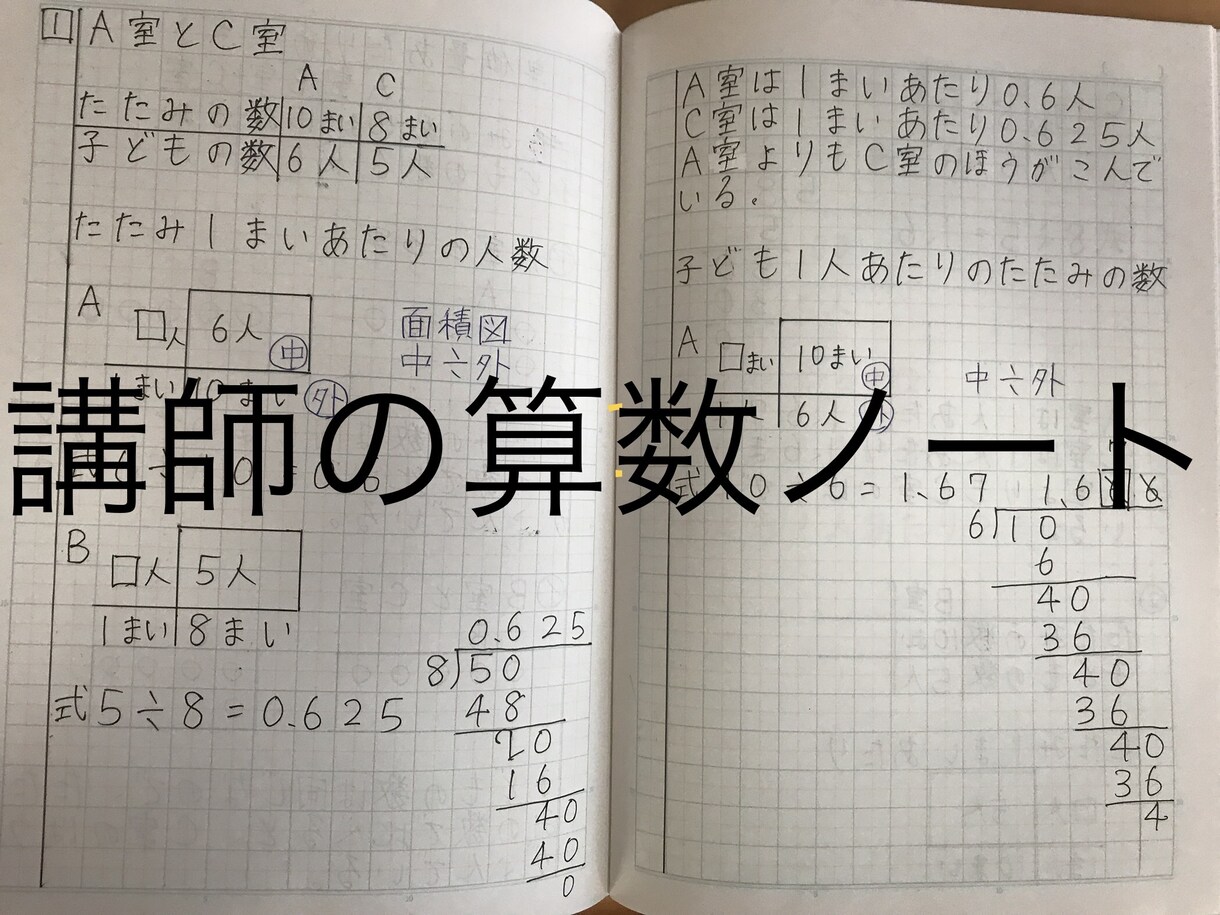 1 A室とC室
A C
たたみの数 10まい 8まい
子どもの数 6人 5人
たたみ1まいあたりの人数
A
□人 6人 中
1まい 10まい 外
面積図
中÷外
B
□人 5人
1まい 8まい
式5÷8=0.625
0.625
8)50
48
20
16
40
40
0
講師の算数ノート
A室は1まいあたり0.6人
C室は1まいあたり0.625人
A室よりもC室のほうがこんで
いる.
子ども1人あたりのたたみの数
A
□まい 10まい 中
6人 外
中÷外
式10÷6=1.67
6)10
6
40
36
40
36
40
36
4